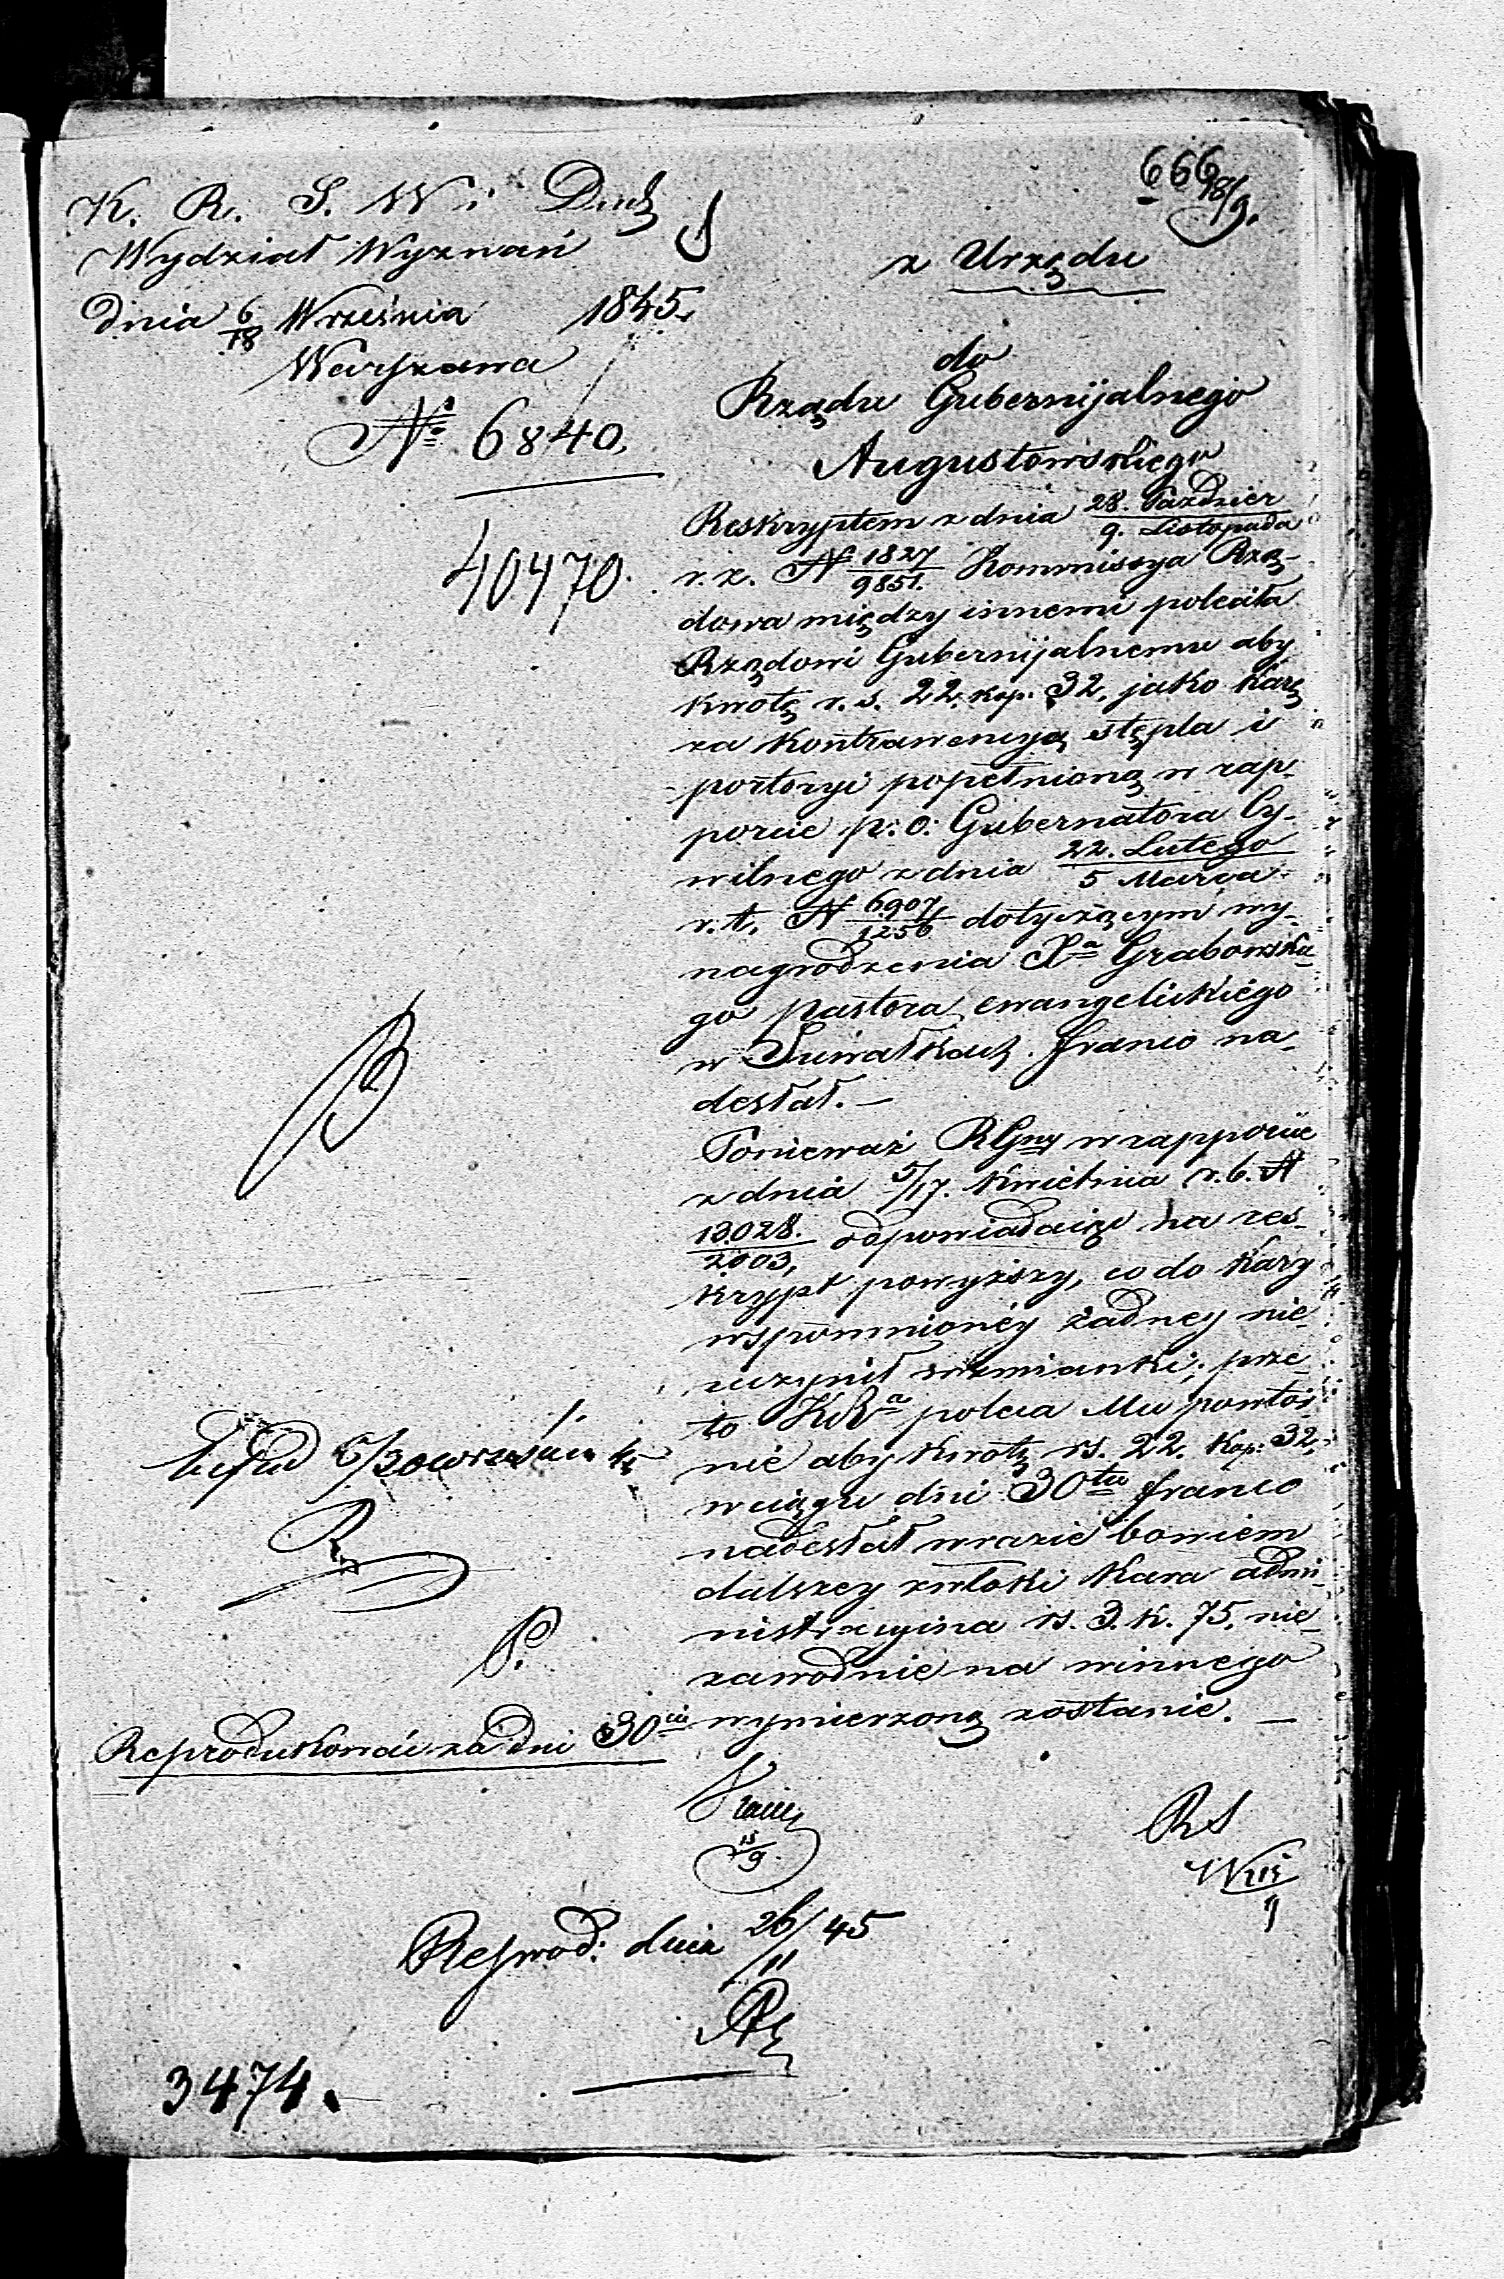 666
18/9.
K. R. S. W i Duch
Wydział Wyznań
dnia 6/18 Września 1845.
Warszawa
№ 6840.
40470.
z Urzędu
do
Rządu Gubernijalnego
Augustowskiego
Reskryptem z dnia 28. Paździer / 9. Listopada
r. z. N 1827/9851. Kommissya Rzą-
dowa między innemi poleciła
Rządowi Gubernijalnemu aby
kwotę r. s. 22, kop. 32, jako karę
za kontrawencyą stępla i
portoryi popełnioną w rap-
porcie p. o. Gubernatora Cy-
wilnego z dnia 22. Lutego / 5 Marca
r. t. N 6907/1256 dotyczącym wy-
nagrodzenia Xa Grabowskie-
go pastora ewangelickiego
w Suwałkach. franco na-
desłał. —
Ponieważ RGny w rapporcie
z dnia 5/17. Kwietnia r. b. N
13028./2003, odpowiadaiąc na res-
krypt powyższy, co do kary
wspomnionéy żadney nie
uczynił wzmianki; prze
to KRa poleca Mu powtór
nie aby kwotę rs. 22. kop: 32,
w ciągu dni 30tu franco
nadesłał w razie bowiem
dalszey zwłoki kara admi-
nistracyina rs. 3. k. 75, nie-
zawodnie na winnego
wymierzoną zostanie. —
5/30 września 45
P.
Reprodukować za dni 30ci
15/9.
RS
Reprod: dnia 26/11 45
3474.